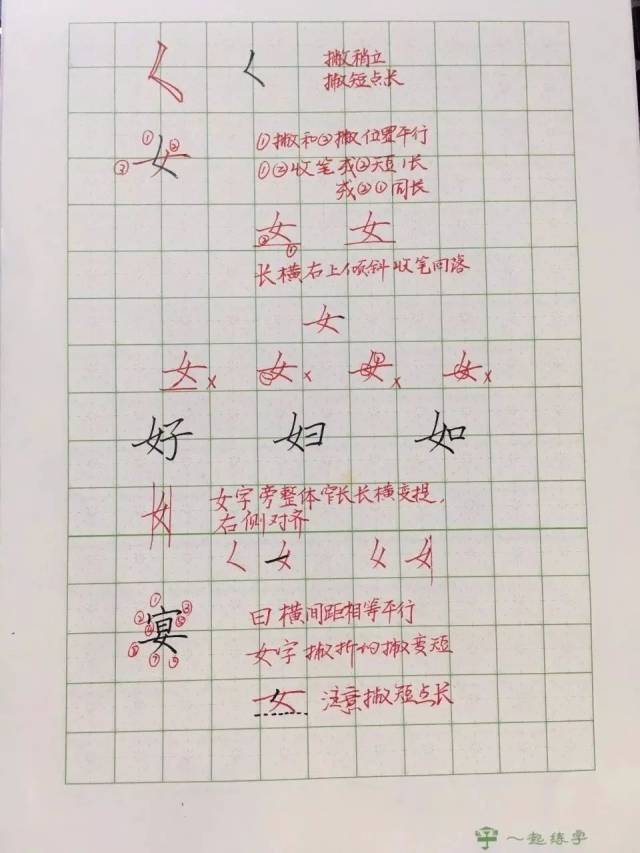 𡿨 𡿨 撇稍立
撇短点长
女 ① ② ③ ①撇和②撇位置平行
①③收笔或③短①长
或③①同长
女 ③ ① 女
长横右上倾斜收笔回落
女
女× 女× 女× 女×
好 妇 如
女 女字旁整体窄长长横变提,
右侧对齐
𡿨 女 女 女
宴 曰横间距相等平行
女字撇折的撇变短
女 注意撇短点长
一起练字